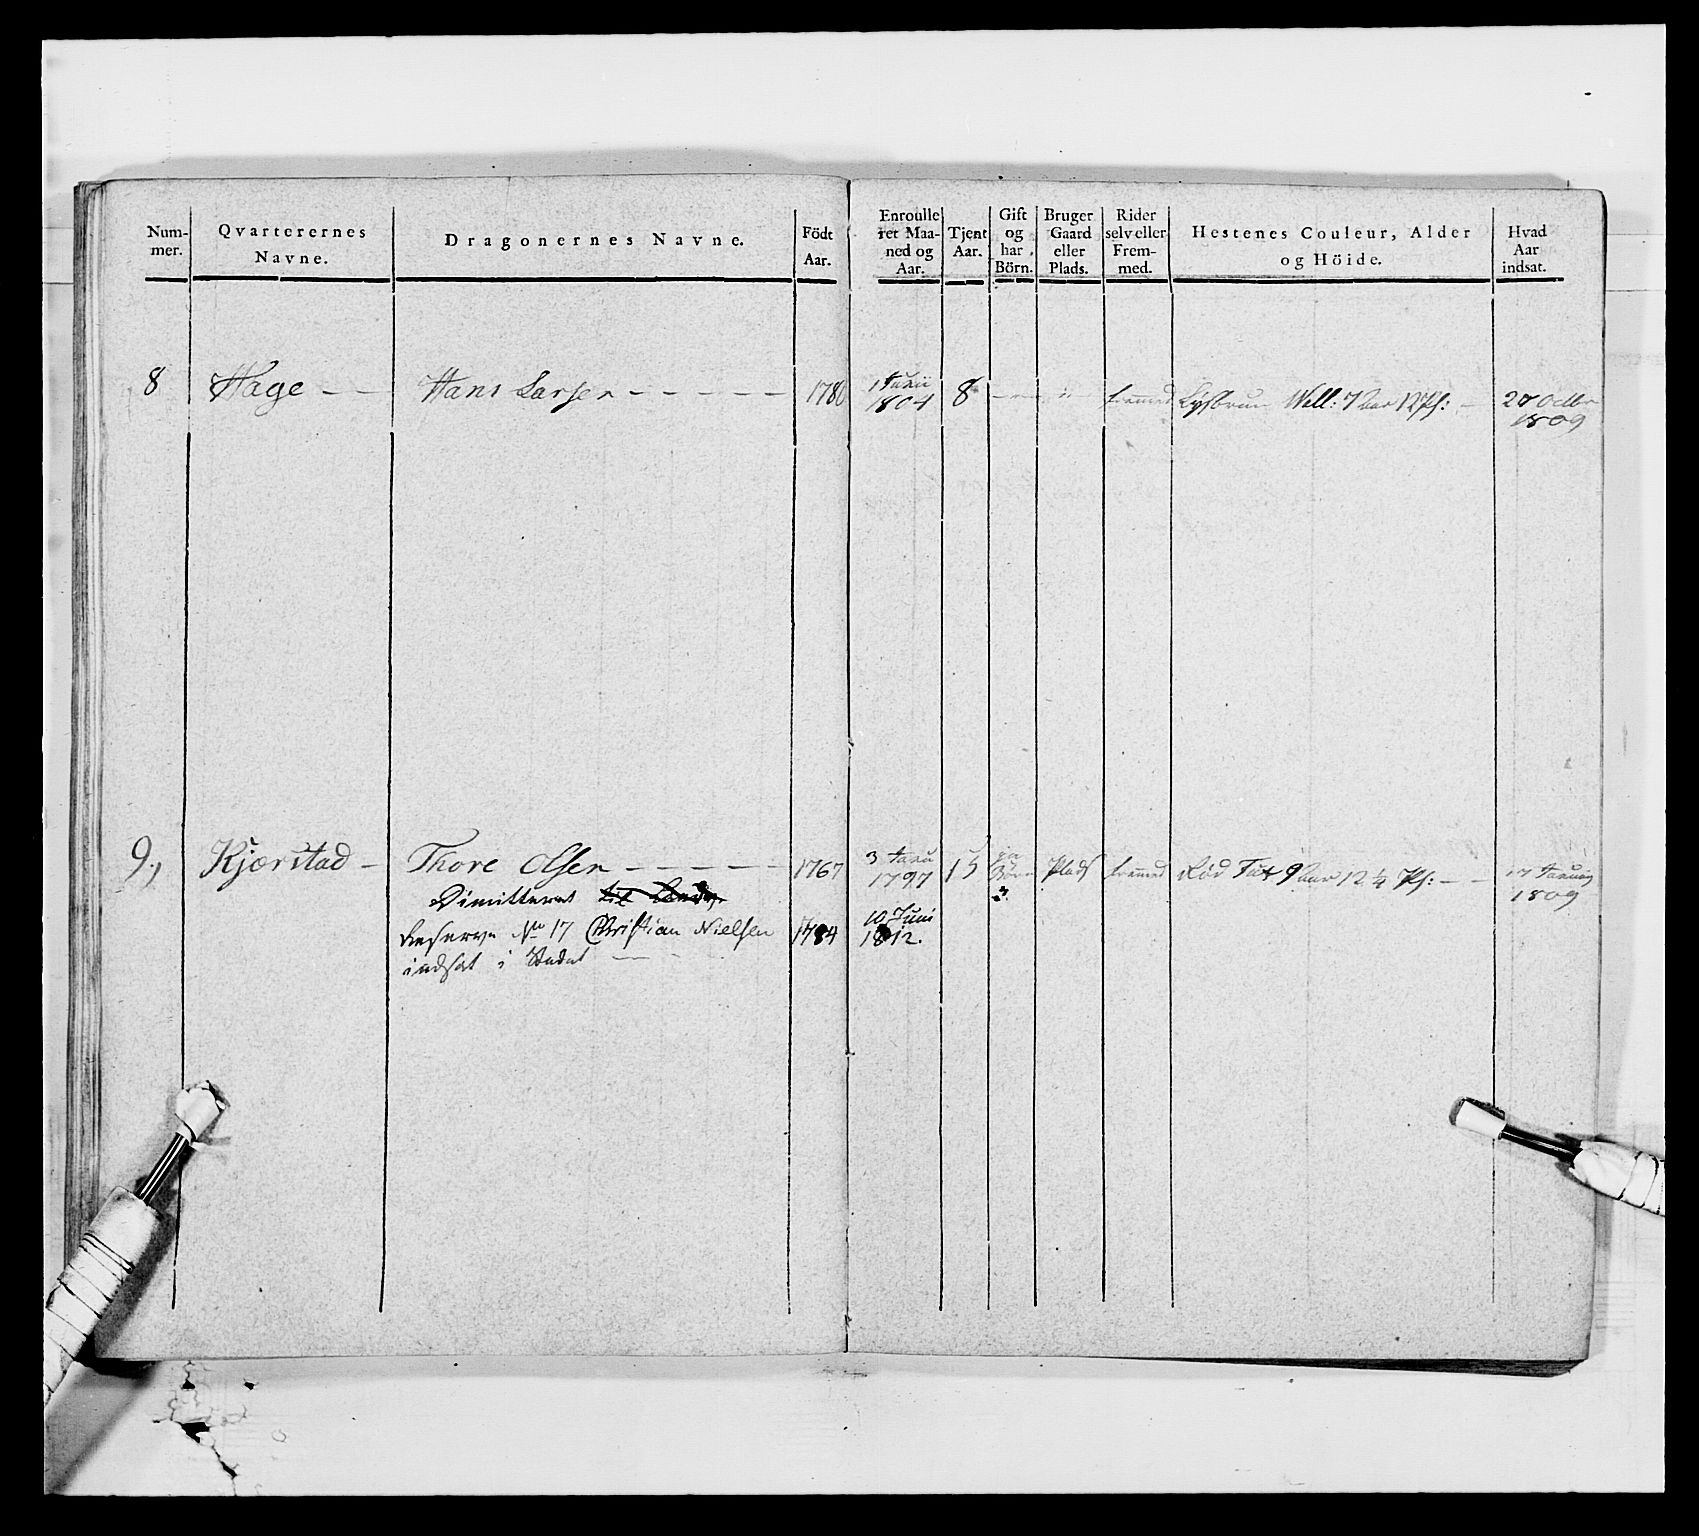 Num-
mer.
Qvarterernes
Navne.
Dragonernes Navne.
Födt
Aar.
Enroulle
ret Maa-
ned og
Aar.
Tjent
Aar.
Gift
og
har
Börn.
Bruger
Gaard
eller
Plads.
Rider
selv eller
Frem-
med.
Hestenes Couleur, Alder
og Höide.
Hvad
Aar
indsat.
8 Hage — — Hans Larsen — — — — — 1780
1804 8 fremmed Lysbrun Well: 7 Aar 12 Pf: — 27 Octbr
1809
9, Kjærstad — Thore Olsen — — — — — 1767
3
1797 15 ja Börn 3 Plads fremmed Rød 9 Aar 12 ¼ Pf: — — 17
1809
Dimitteret til
Reserve No 17 Christian Nielsen 1784
10 Juni
1812.
indsat i Stedet — —